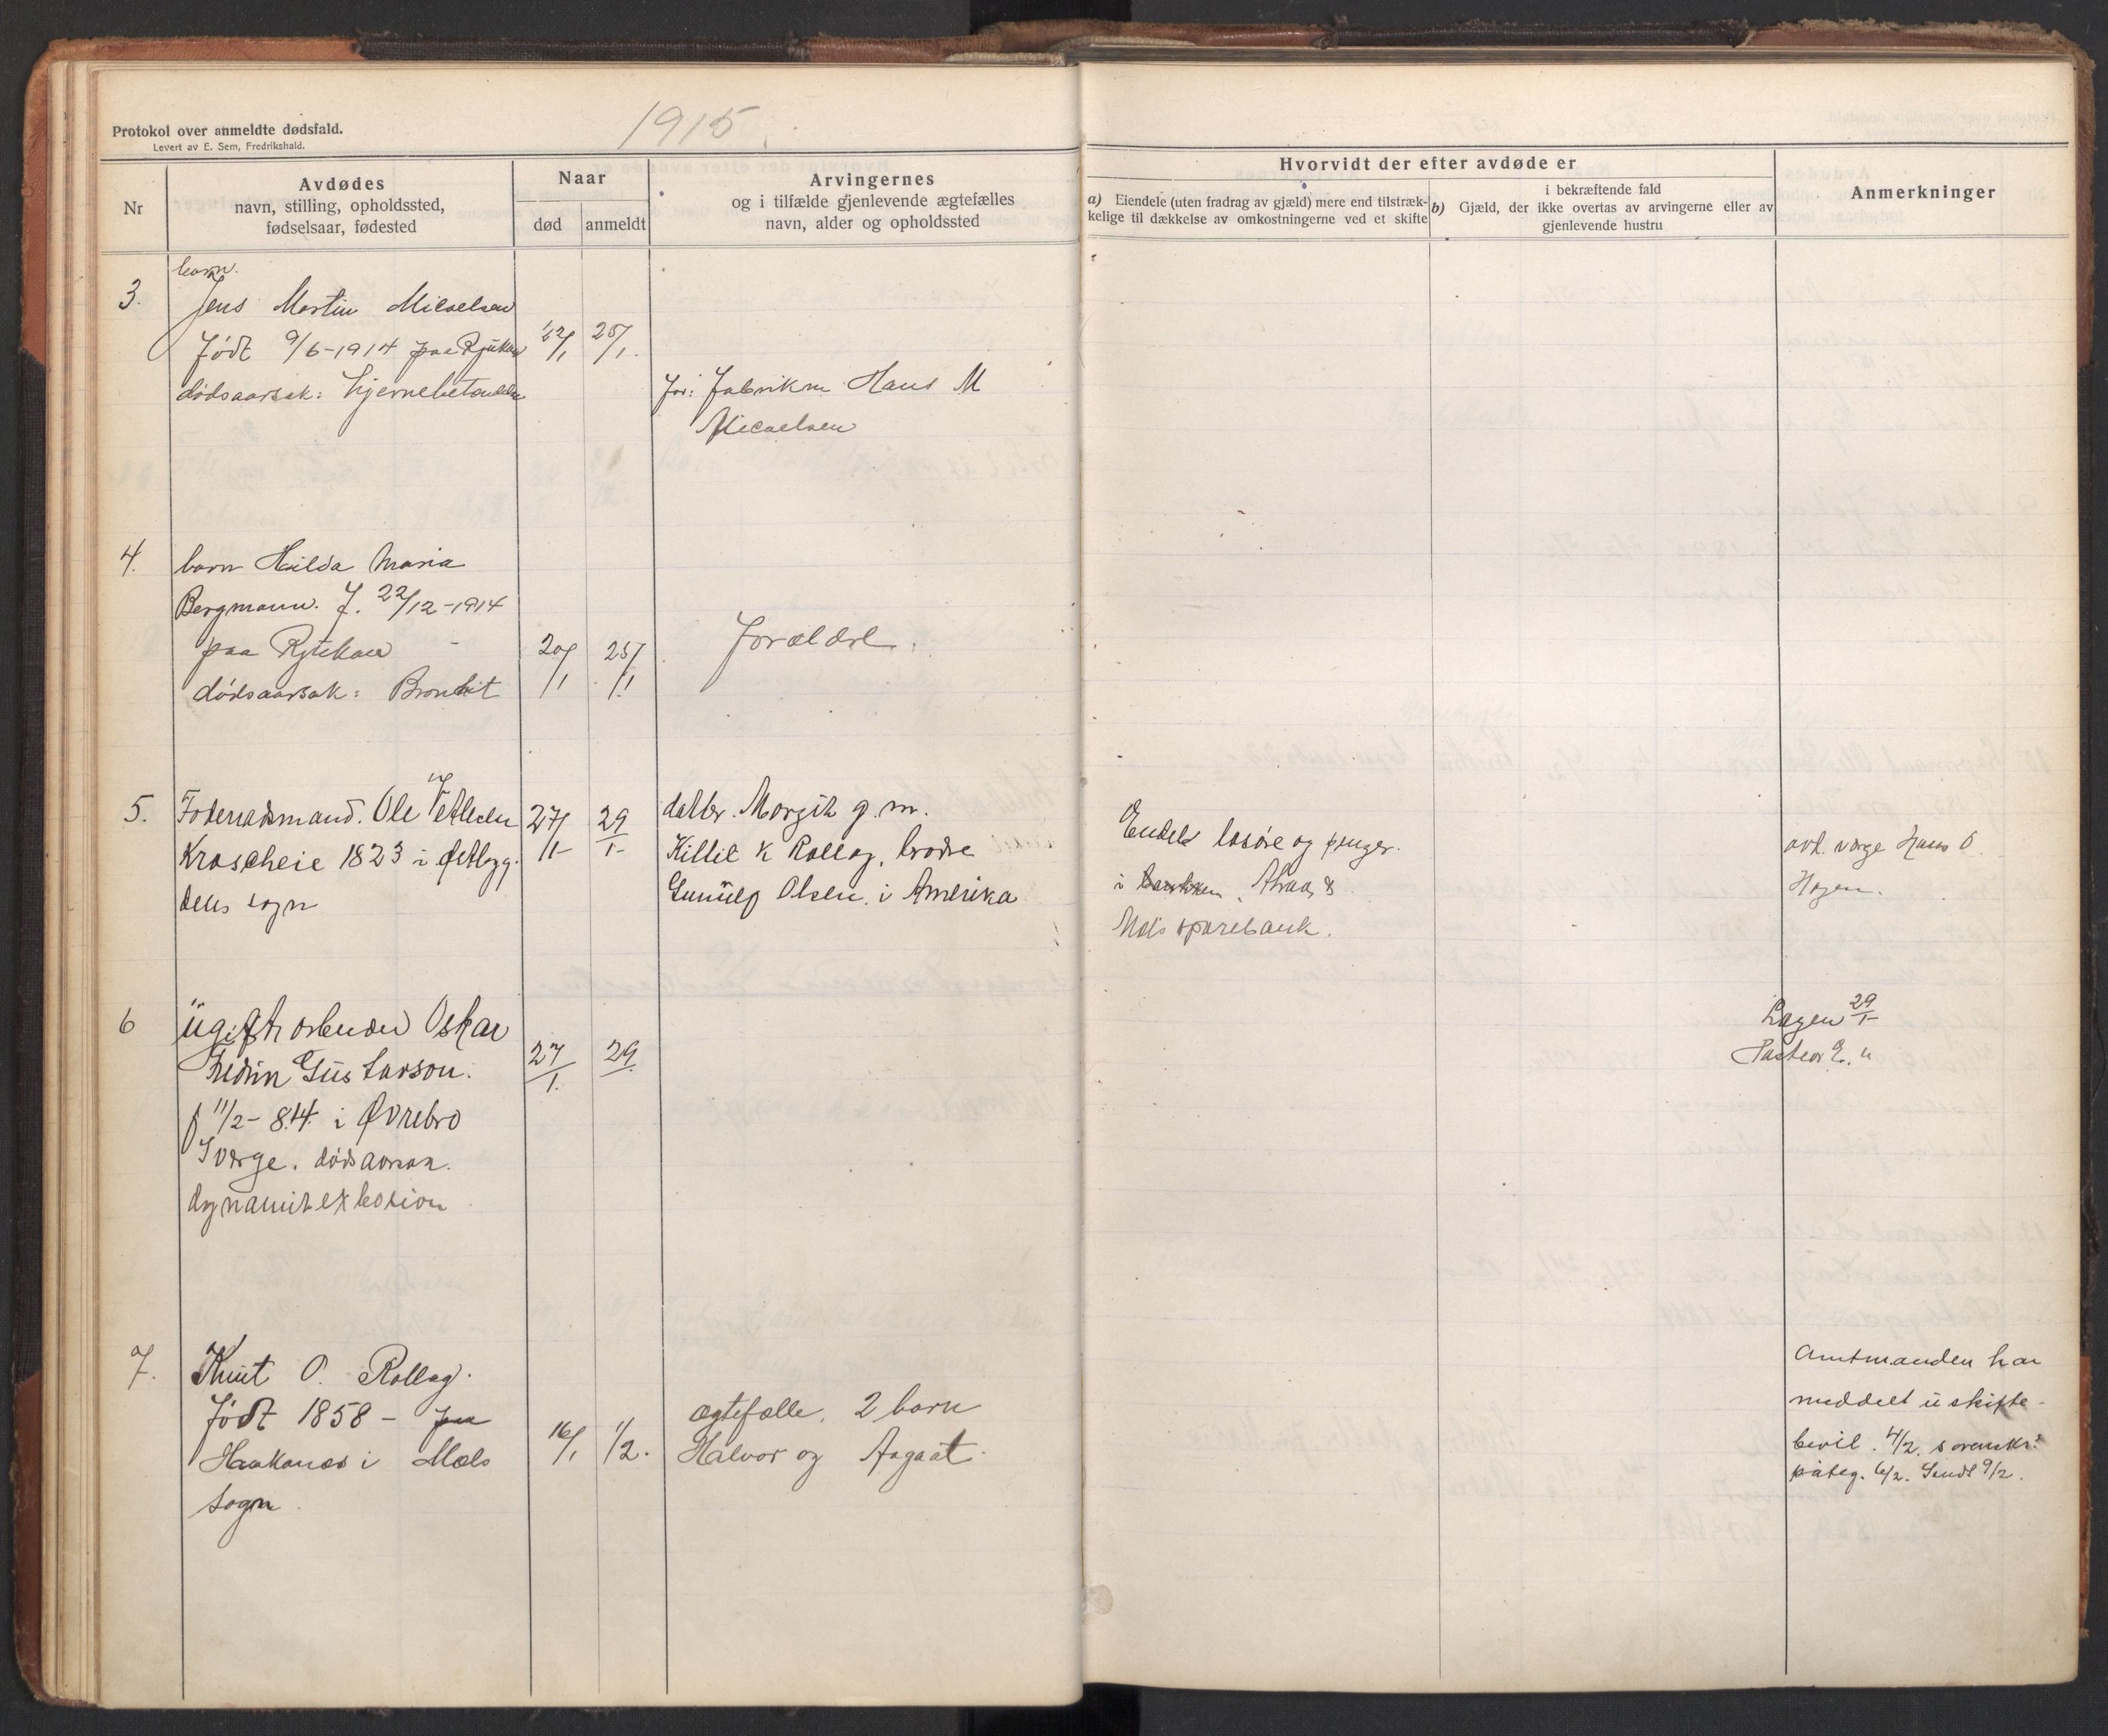 Protokol over anmeldte dødsfald.
Levert av E. Sem, Fredrikshald.
1915
Nr
Avdødes
navn, stilling, opholdssted,
fødselsaar, fødested
Naar
død
anmeldt
Arvingernes
og i tilfælde gjenlevende ægtefælles
navn, alder og opholdssted
Hvorvidt der efter avdøde er
a) Eiendele (uten fradrag av gjæld) mere end tilstræk-
kelige til dækkelse av omkostningerne ved et skifte
i bekræftende fald
b) Gjæld, der ikke overtas av arvingerne eller av
gjenlevende hustru
Anmerkninger
barn.
3. Jens Martin Micaelsen
født 9/6-1914 paa Rjukan 22/1 25/1.
dødsaarsak: hjernebetændelse
for: Fabrikm Hans M
Micaelsen
4. barn Hulda Maria
Bergmann. f. 22/12-1914
paa Rjukan 20/1 25/1 forældre.
dødsaarsak: Bronkit
5. Foderraadsmand. Ole Vetlesen 27/1 29/1 datter. Margit g. m.
Kroscheie 1823 i Østbyg- Killil K Rollag, brodre
dens sogn Gunulf Olsen i Amerika
Endel løsøre og penger.
i banken, Atraa &
Mæls sparebank.
avl. værge Hans O
Hagen.
6 ugift arbeider Oskar
Fridin Gustavson. 27/1. 29
f 11/2-84. i Øvrebro
Sverge. dødsaarsak.
dynamitexplosion
Lægen 29/1
Pastor E. "
7. Knut O. Rollag.
født 1858 - paa
Haakanæs i Mæls 16/1 1/2.
sogn
ægtefælle, 2 barn
Halvor og Aagaat.
Amtmanden har
meddelt uskifte-
bevil. 4/2. sorenskr:
påteg. 6/2. Sendt 9/2.